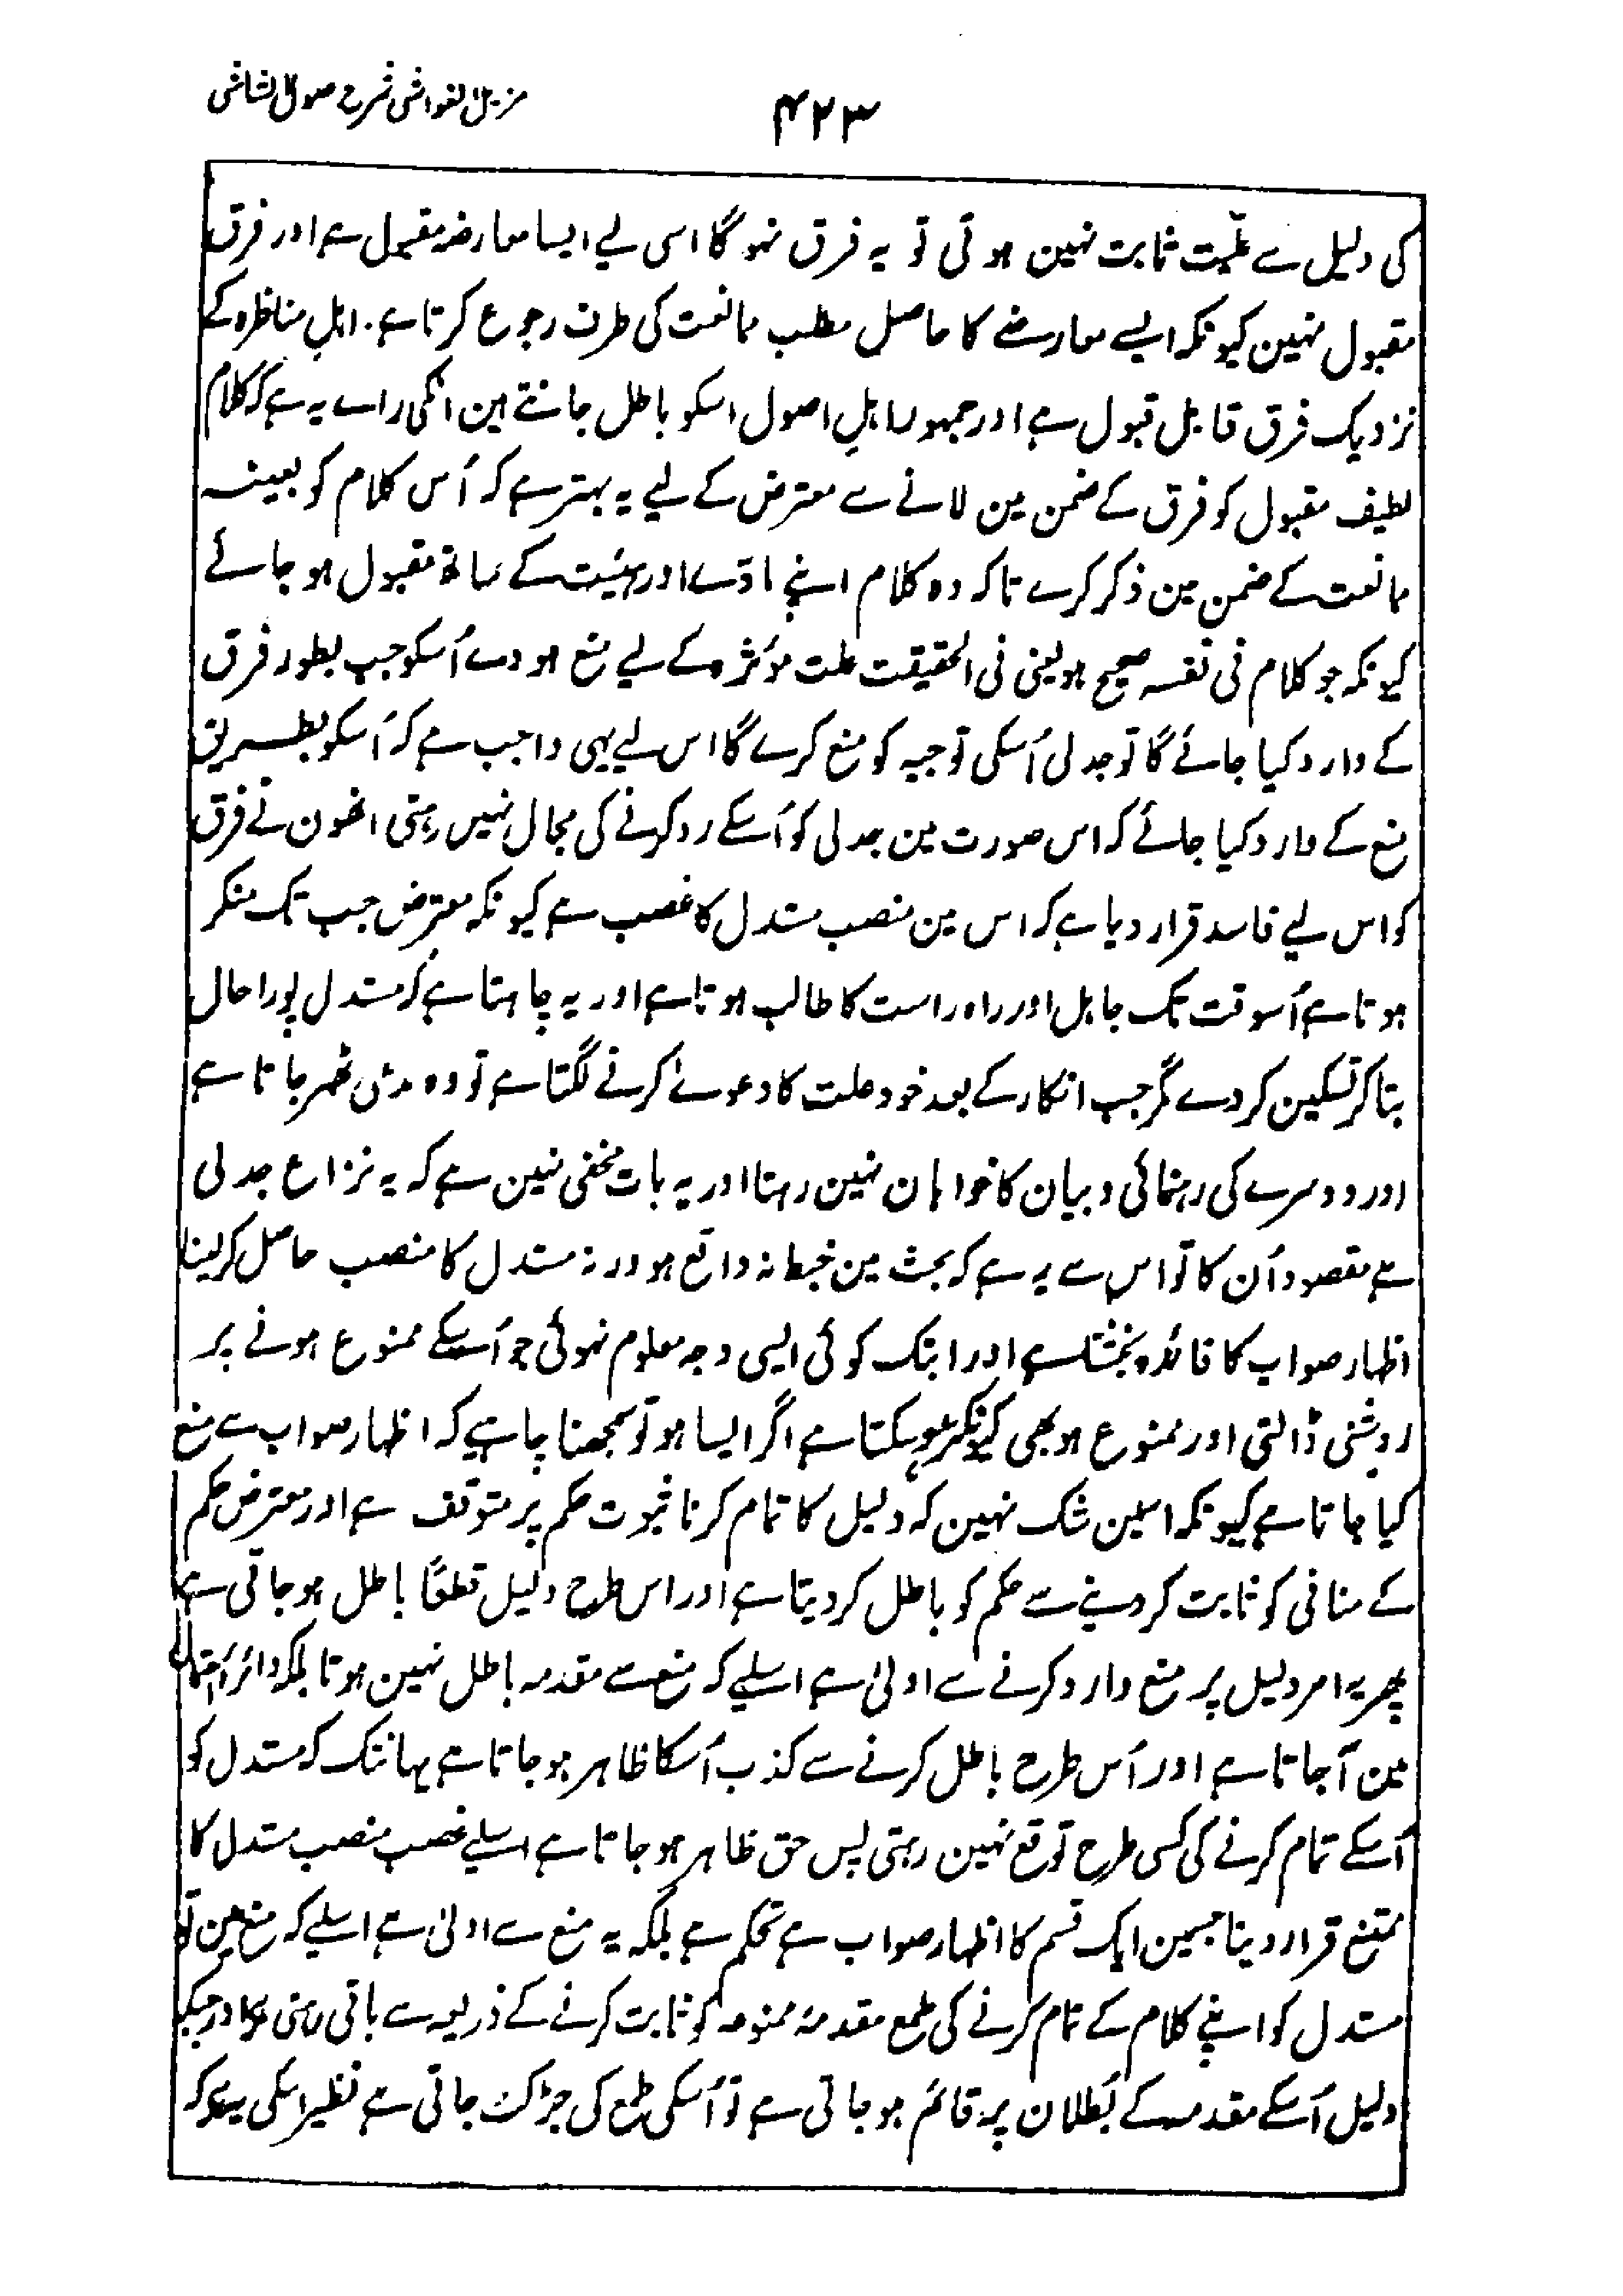 مزیل الغواشی شرح اصول الشاشی
۴۲۳
کی دلیل سے علّیت ثابت نہین ہوتی تو یہ فرق نہوگا اسی لیے ایسا معارضہ مقبول ہے اور فرق
مقبول نہین کیونکہ ایسے معارضے کا حاصل مطلب ممانعت کی طرف رجوع کرتا ہے۔ اہلِ مناظرہ کے
نزدیک فرق قابل قبول ہے اور جمہور اہلِ اصول اسکو باطل جانتے ہین انکی راے یہ ہے کہ کلام
لطیف مقبول کو فرق کے ضمن مین لانے سے معترض کے لیے یہ بہتر ہے کہ اُس کلام کو بعینہ
ممانعت کے ضمن مین ذکر کرے تاکہ وہ کلام اپنے مادّے اور ہیئت کے ساتھ مقبول ہو جائے
کیونکہ جو کلام فی نفسہ صحیح ہو یعنی فی الحقیقت علت مؤثرہ کے لیے منع ہووے اُسکو جب بطور فرق
کے وارد کیا جائے گا تو جدلی اُسکی توجیہ کو منع کرے گا اس لیے یہی واجب ہے کہ اُسکو بطریق
منع کے وارد کیا جائے کہ اس صورت مین جدلی کو اُسکے رد کرنے کی مجال نہیں رہتی انھون نے فرق
کو اس لیے فاسد قرار دیا ہے کہ اس مین منصب مستدل کا غصب ہے کیونکہ معترض جب تک منکر
ہوتا ہے اُسوقت تک جاہل اور راہ راست کا طالب ہوتا ہے اور یہ چاہتا ہے کہ مستدل پورا حال
بتا کر تسکین کردے مگر جب انکار کے بعد خود علت کا دعوےٰ کرنے لگتا ہے تو وہ مدعی ٹھہر جاتا ہے
اور دوسرے کی رہنمائی و بیان کا خواہان نہین رہتا اور یہ بات مخفی نہین ہے کہ یہ نزاع جدلی
ہے مقصود اُن کا تو اس سے یہ ہے کہ بحث مین خبط نہ واقع ہو ورنہ مستدل کا منصب حاصل کرلینا
اظہار صواب کا فائدہ بخشتا ہے اور ابتک کوئی ایسی وجہ معلوم نہوئی جو اُسکے ممنوع ہونے پر
روشنی ڈالتی اور ممنوع ہو بھی کیونکر ہوسکتا ہے اگر ایسا ہو تو سمجھنا چاہیے کہ اظہار صواب سے منع
کیا جاتا ہے کیونکہ اسمین شک نہین کہ دلیل کا تمام کرنا ثبوت حکم پر متوقف ہے اور معترض حکم
کے منافی کو ثابت کردینے سے حکم کو باطل کردیتا ہے اور اس طرح دلیل قطعًا باطل ہو جاتی ہے
پھر یہ امر دلیل پر منع وارد کرنے سے اولیٰ ہے اسلیے کہ منع سے مقدمہ باطل نہین ہوتا بلکہ دائرۂ احتمال
مین آجاتا ہے اور اُس طرح باطل کرنے سے کذب اُسکا ظاہر ہو جاتا ہے یہانتک کہ مستدل کو
اُسکے تمام کرنے کی کسی طرح توقع نہین رہتی پس حق ظاہر ہو جاتا ہے اسلیے غصب منصب مستدل کا
ممتنع قرار دینا جسمین ایک قسم کا اظہار صواب ہے تحکم ہے بلکہ یہ منع سے اولیٰ ہے اسلیے کہ منع مین تو
مستدل کو اپنے کلام کے تمام کرنے کی طمع مقدمۂ ممنوعہ کو ثابت کرنے کے ذریعہ سے باقی رہتی ہے اور جبکہ
دلیل اُسکے مقدمہ کے بُطلان پر قائم ہو جاتی ہے تو اُسکی طمع کی جڑ کٹ جاتی ہے نظیر اسکی یہ ہے کہ